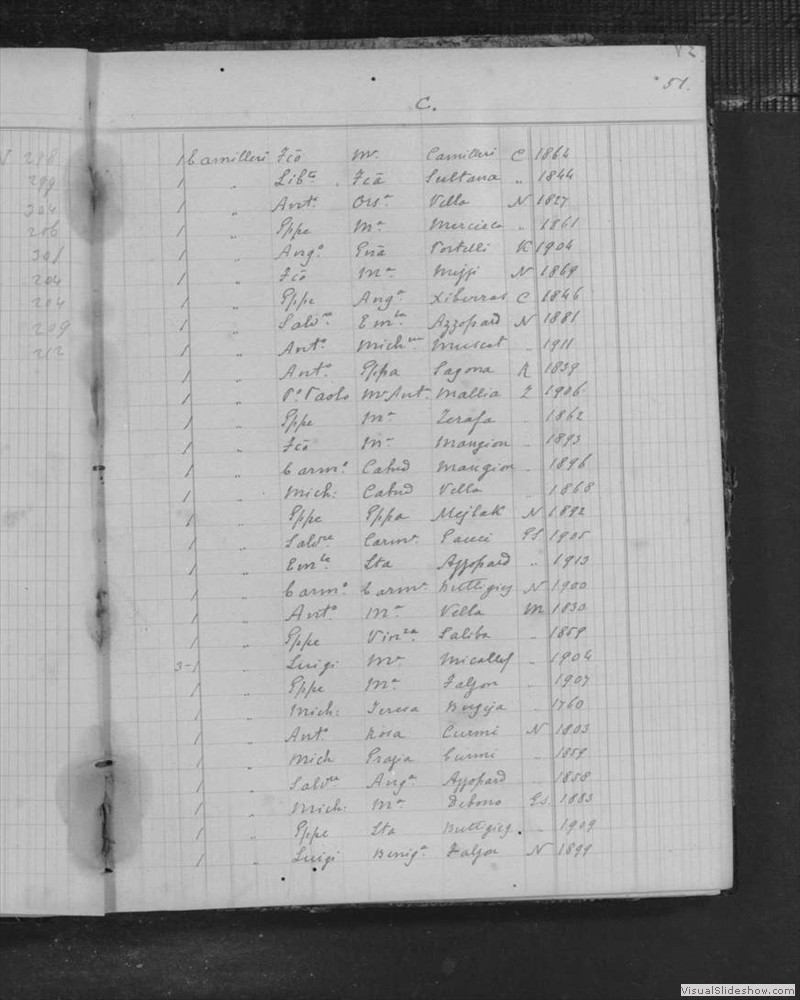 51.
C.
1 Camilleri Fcō Mª Camilleri C 1864
1 " Libª Fcā Sultana " 1844
1 " Antº Orsª Vella N 1827
1 " Gppe Mª Mercieca " 1861
1 " Angº Gnā Portelli K 1904
1 " Fcō Mª Mifsi N 1869
1 " Gppe Angª Xiberras C 1846
1 " Salvʳᵉ Emˡᵃ Azzopard N 1881
1 " Antº Michⁿᵃ Muscat " 1911
1 " Antº Gppa Sagona K 1839
1 " Pº Paolo M Antª Mallia Z 1906
1 " Gppe Mª Zerafa " 1862
1 " Fcō Mª Mangion " 1893
1 " Carmº Catnd Mangion " 1896
1 " Mich: Catnd Vella " 1868
1 " Gppe Gppa Mejlak N 1892
1 " Salvʳᵉ Carmª Pacci Gs 1905
1 " Emˡᵉ Sta Azzopard " 1913
1 " Carmº Carmª Buttigieg N 1900
1 " Antº Mª Vella M 1830
1 " Gppe Vinᶻᵃ Saliba " 1859
3-1 " Luigi Mª Micallef " 1904
1 " Gppe Mª Falzon " 1907
1 " Mich: Teresa Bugeja " 1760
1 " Antº Rosa Curmi N 1803
1 " Mich Grazia Curmi " 1859
1 " Salvʳᵉ Angª Azzopard " 1858
1 " Mich: Mª Debono Gs. 1883
1 " Gppe Sta Buttigieg " 1909
1 " Luigi Benigª Falzon N 1899
299
204
204
209
212
VisualSlideshow.com